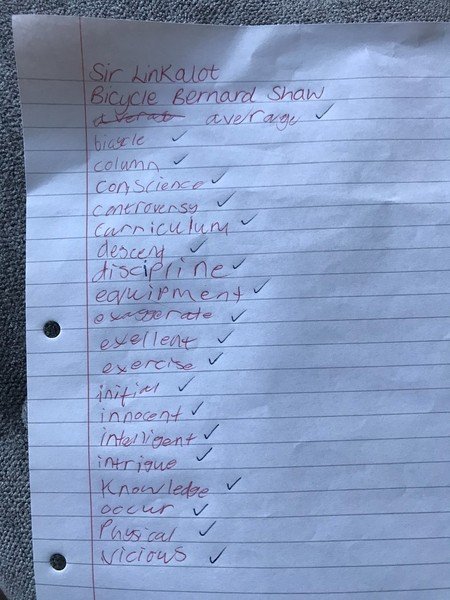 Sir Linkalot
Bicycle Bernard Shaw
averat average ✓
bicycle ✓
column ✓
conscience ✓
controversy ✓
carriculum ✓
descent ✓
discipline ✓
equipment ✓
exaggerate ✓
exellent ✓
exercise ✓
initial ✓
innocent ✓
intelligent ✓
intrigue ✓
Knowledge ✓
occur ✓
Physical ✓
vicious ✓